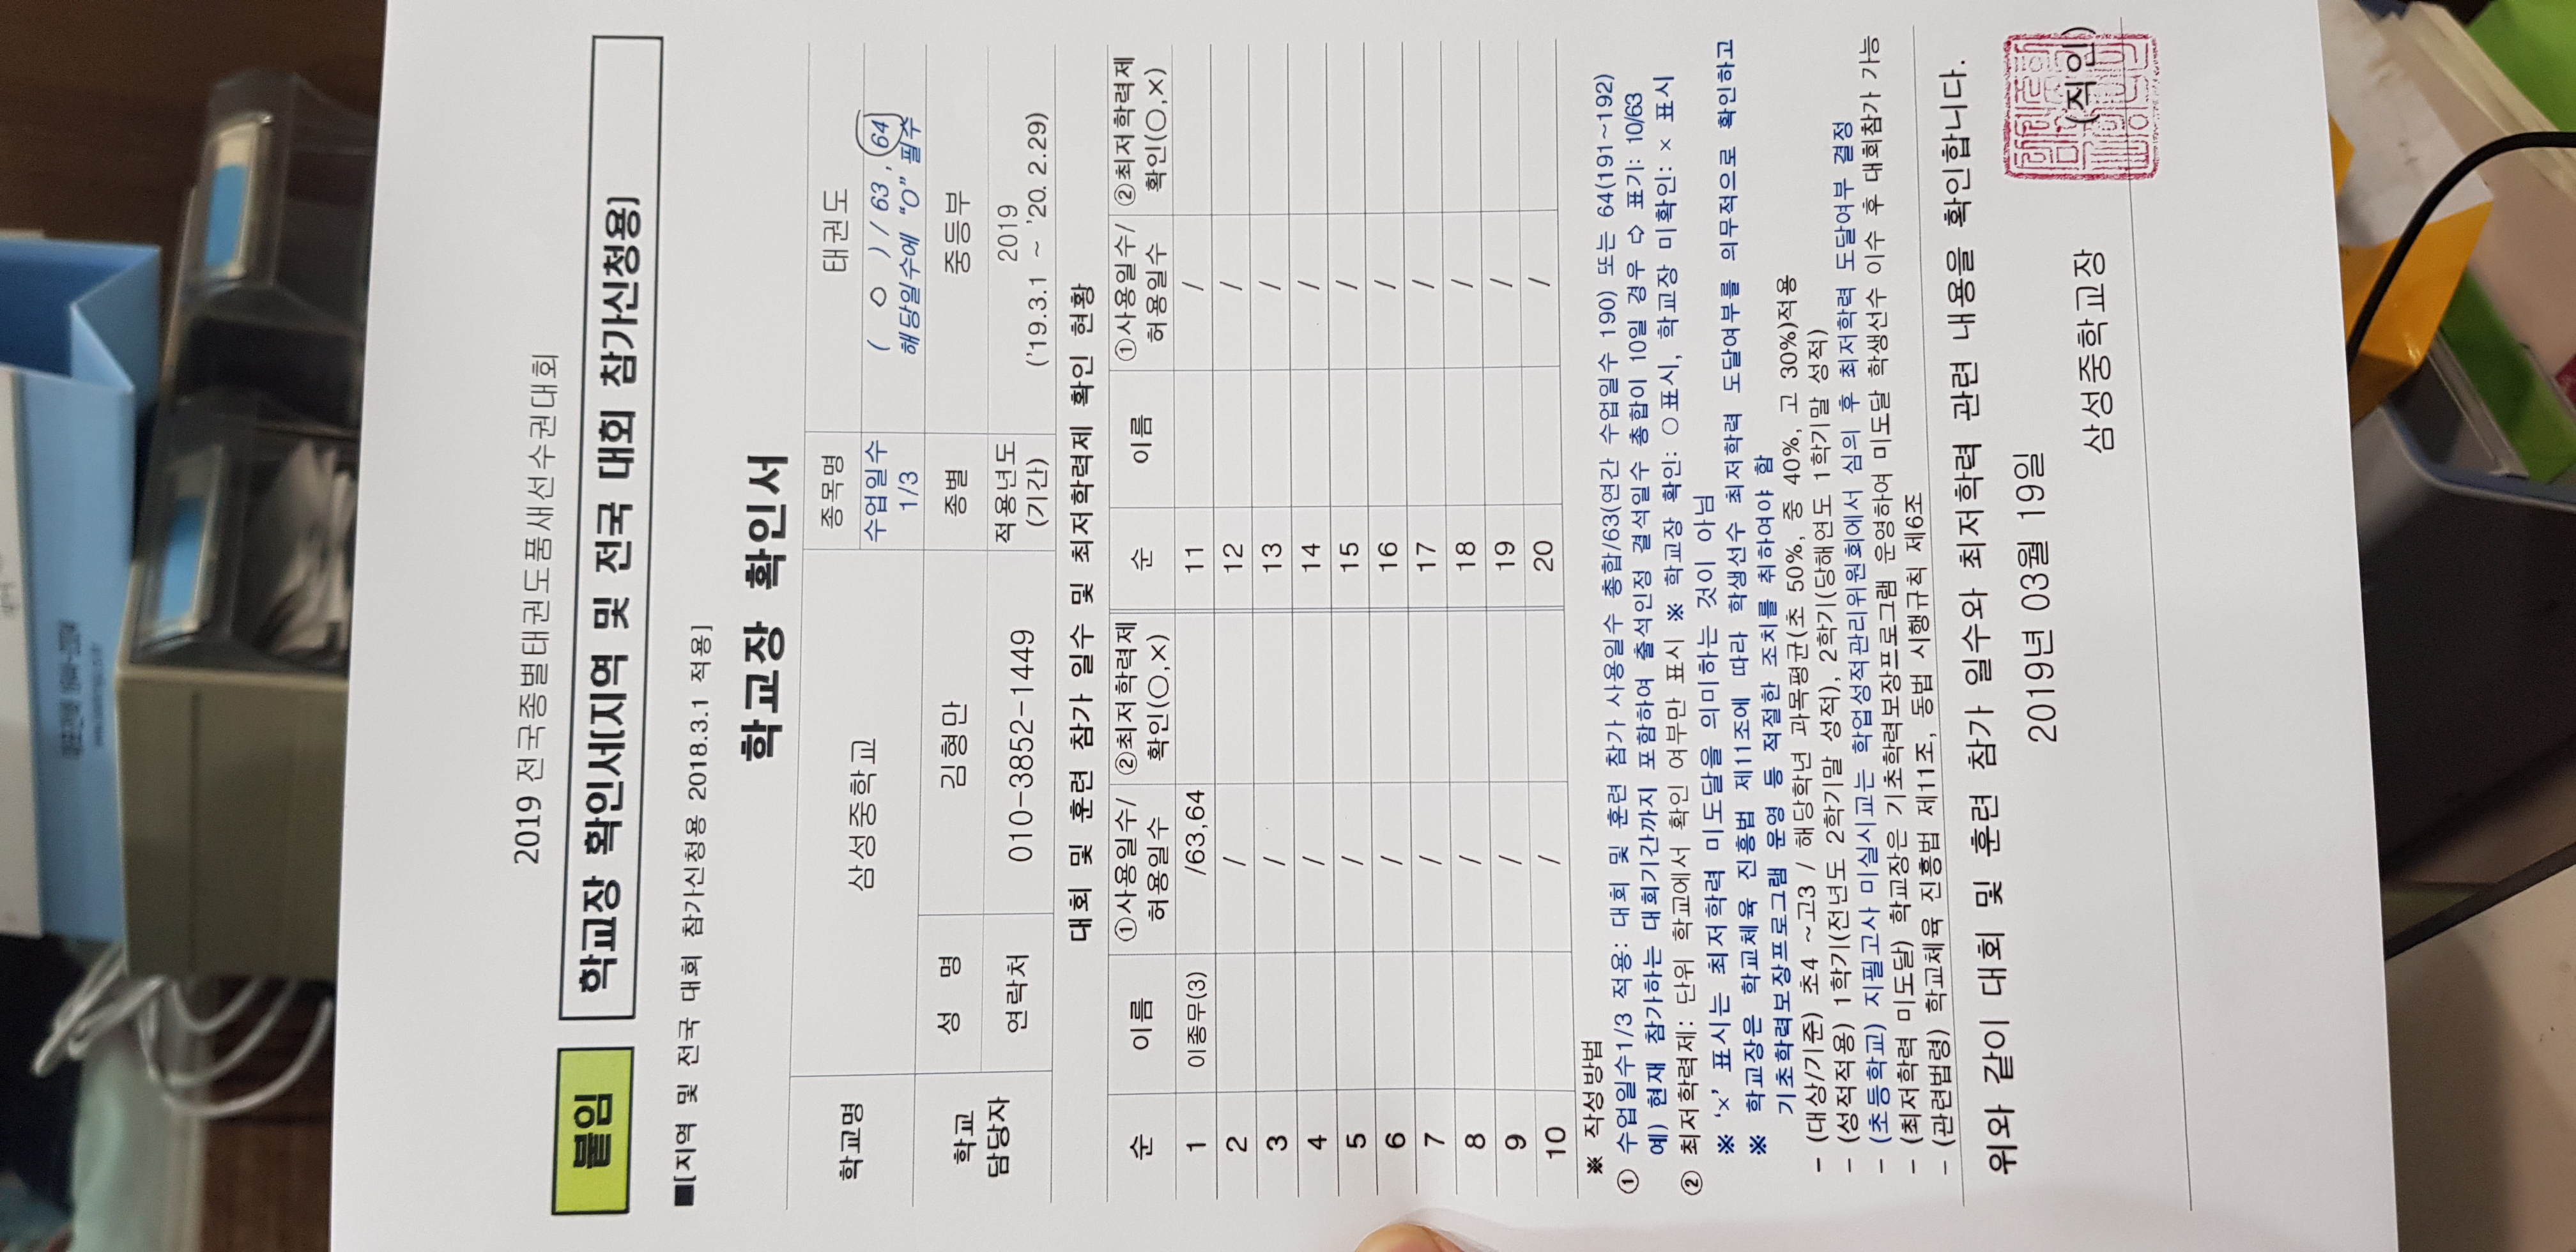 2019 전국종별태권도품새선수권대회
붙임 학교장 확인서[지역 및 전국 대회 참가신청용)
■[지역 및 전국 대회 참가신청용 2018.3.1 적용]
학교장 확인서
학교명 삼성중학교 종목명 태권도
수업일수 1/3 ( ㅇ ) / 63 , 64
해당일수에 “O” 필수
학교 담당자 성 명 김형만 종별 중등부
연락처 010-3852-1449 적용년도 (기간) 2019
('19.3.1 ~ '20. 2.29)
대회 및 훈련 참가 일수 및 최저학력제 확인 현황
순 이름 ①사용일수/허용일수 ②최저학력제 확인(○,×) 순 이름 ①사용일수/허용일수 ②최저학력제 확인(○,×)
1 이종무(3) /63,64 11 /
2 / 12 /
3 / 13 /
4 / 14 /
5 / 15 /
6 / 16 /
7 / 17 /
8 / 18 /
9 / 19 /
10 / 20 /
※ 작성방법
① 수업일수1/3 적용: 대회 및 훈련 참가 사용일수 총합/63(연간 수업일수 190) 또는 64(191~192)
예) 현재 참가하는 대회기간까지 포함하여 출석인정 결석일수 총합이 10일 경우 ⇨ 표기: 10/63
② 최저학력제: 단위 학교에서 확인 여부만 표시 ※ 학교장 확인: ○표시, 학교장 미확인: × 표시
※ ‘×’ 표시는 최저학력 미도달을 의미하는 것이 아님
※ 학교장은 학교체육 진흥법 제11조에 따라 학생선수 최저학력 도달여부를 의무적으로 확인하고
기초학력보장프로그램 운영 등 적절한 조치를 취하여야 함
- (대상/기준) 초4 ~고3 / 해당학년 과목평균(초 50%, 중 40%, 고 30%)적용
- (성적적용) 1학기(전년도 2학기말 성적), 2학기(당해연도 1학기말 성적)
- (초등학교) 지필고사 미실시교는 학업성적관리위원회에서 심의 후 최저학력 도달여부 결정
- (최저학력 미도달) 학교장은 기초학력보장프로그램 운영하여 미도달 학생선수 이수 후 대회참가 가능
- (관련법령) 학교체육 진흥법 제11조, 동법 시행규칙 제6조
위와 같이 대회 및 훈련 참가 일수와 최저학력 관련 내용을 확인합니다.
2019년 03월 19일
삼성중학교장 (직인)